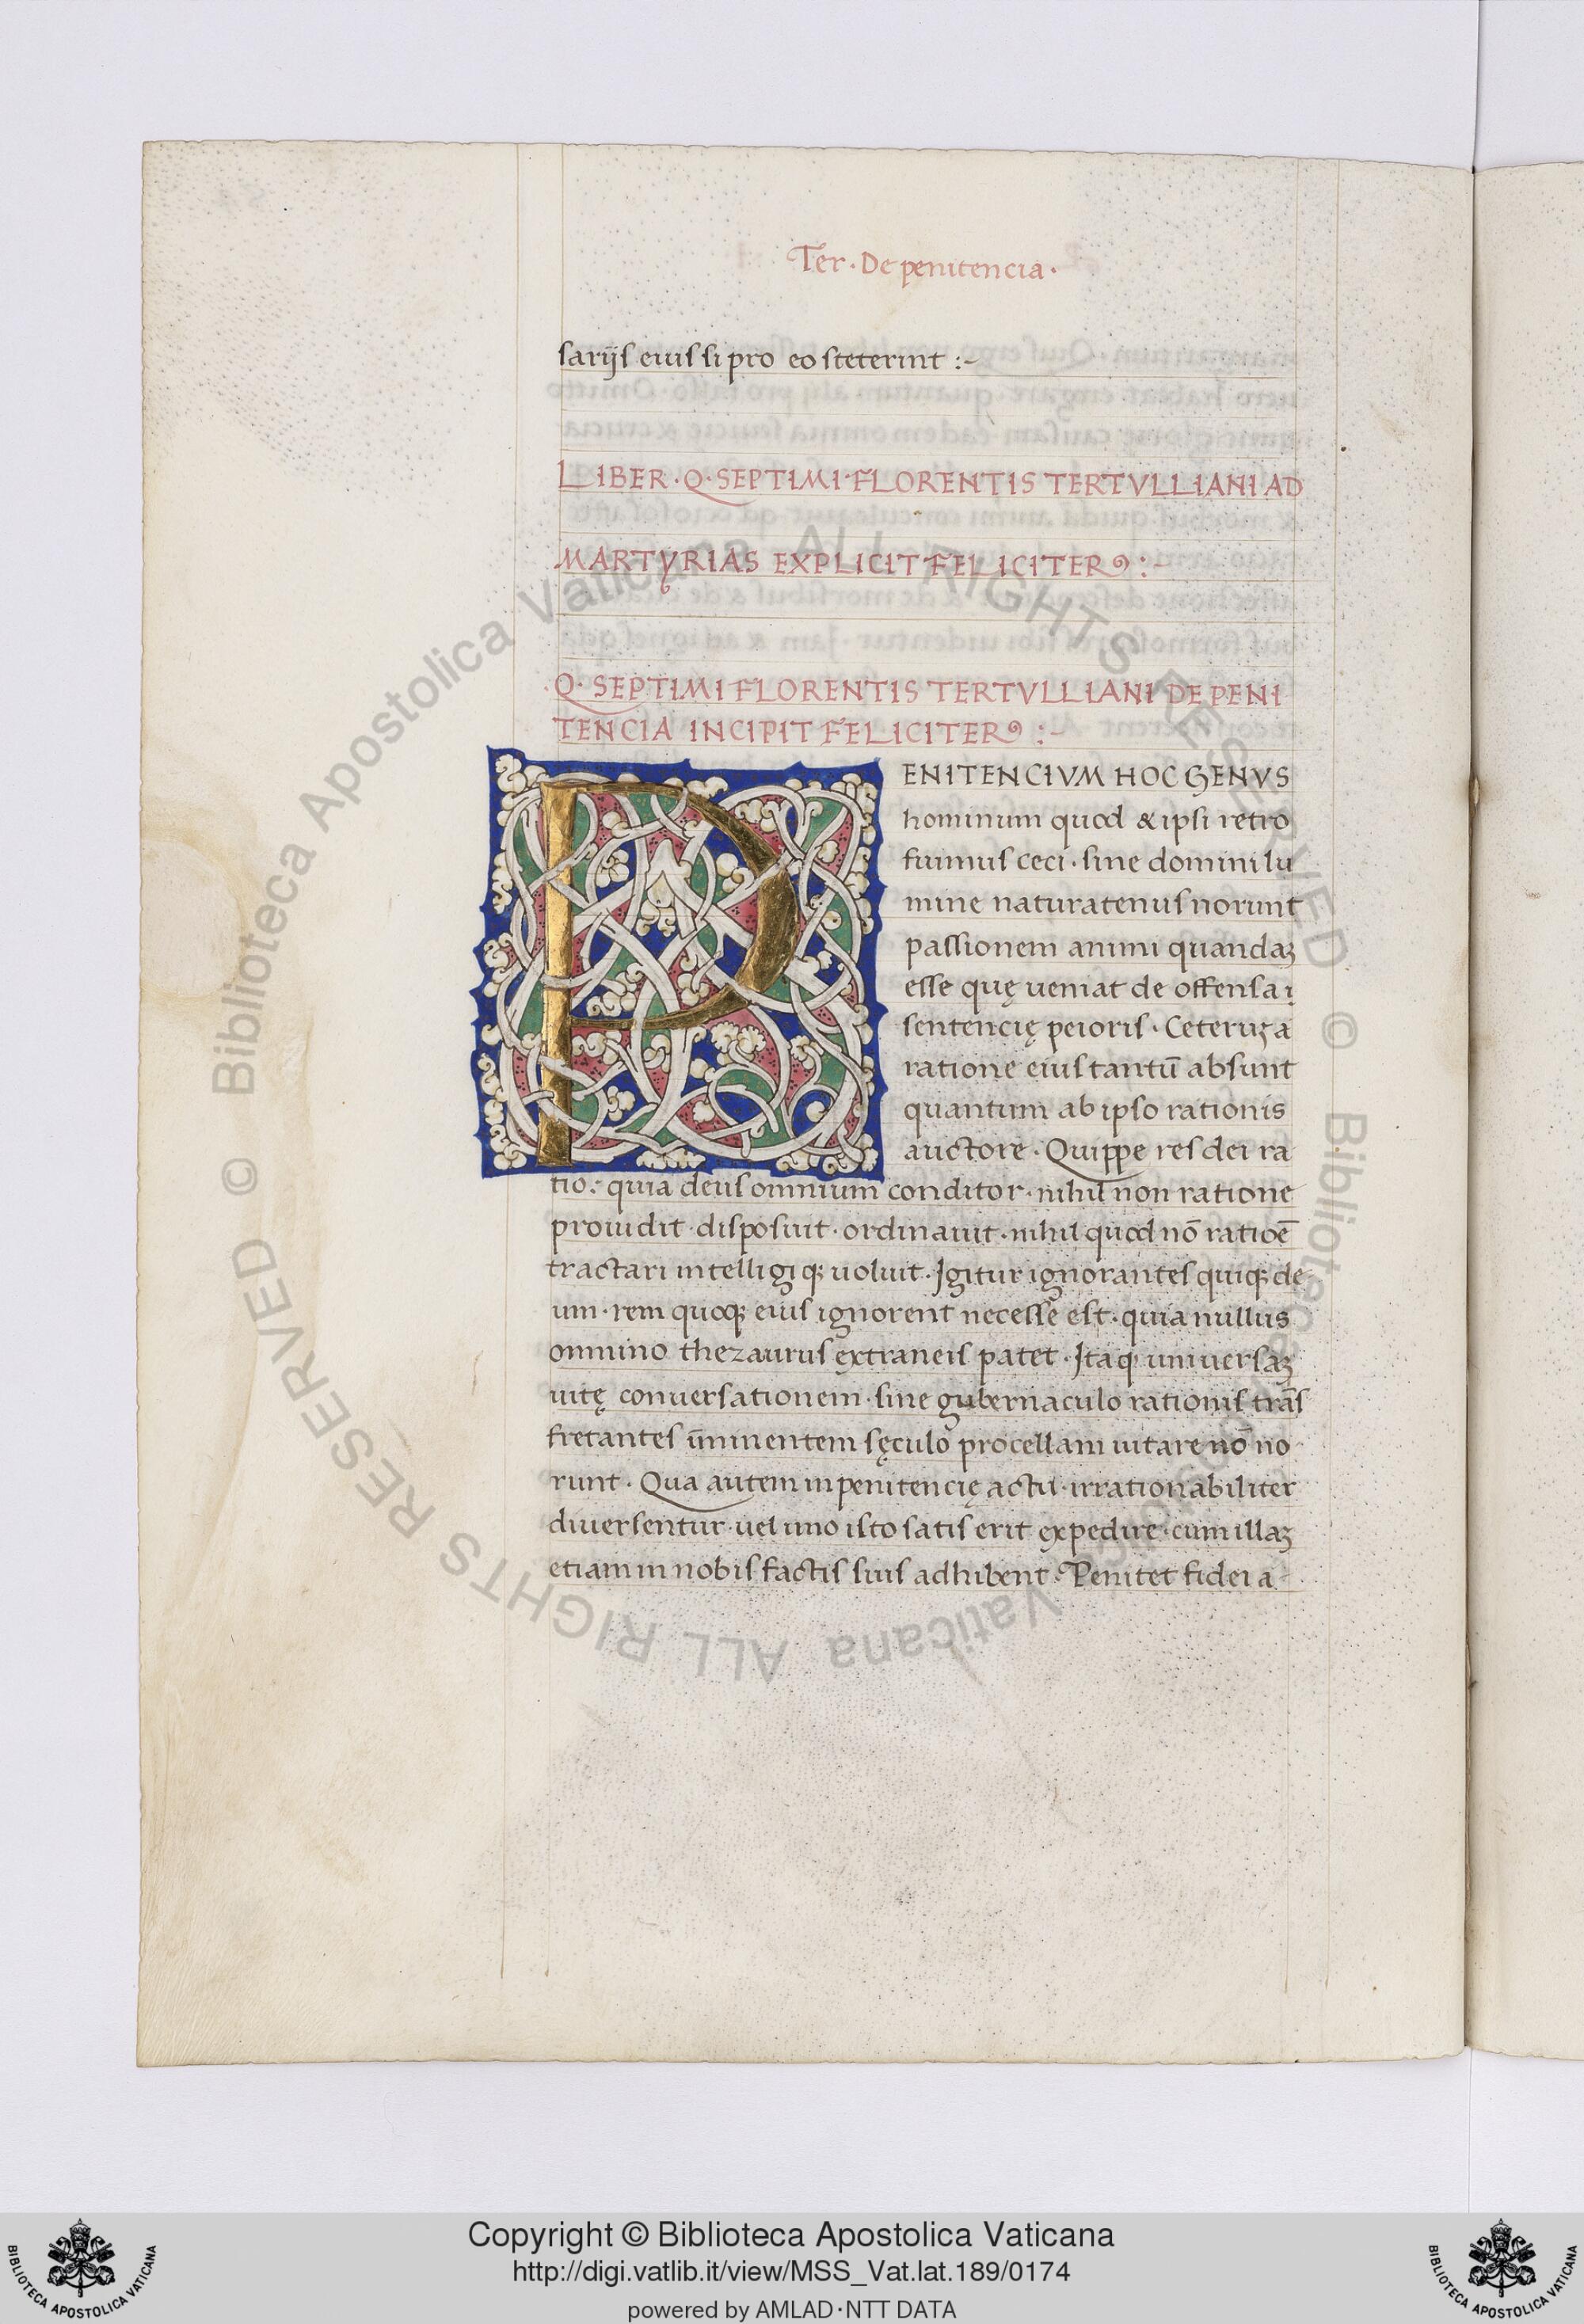 Ter · De penitencia ·
sarijs eius si pro eo steterint :-
LIBER · Q · SEPTIMI · FLORENTIS TERTVLLIANI AD
MARTYRIAS EXPLICIT FELICITER :-
Q · SEPTIMI FLORENTIS TERTVLLIANI DE PENI
TENCIA INCIPIT FELICITER :-
PENITENCIVM HOC GENVS
hominum quod & ipsi retro
fuimus ceci · sine domini lu
mine naturatenus norunt
passionem animi quandaʒ
esse quę ueniat de offensa
sentencię peioris · Ceteruʒ a
ratione eius tantū absunt
quantum ab ipso rationis
auctore · Quippe res dei ra
tio : quia deus omnium conditor · nihil non ratione
prouidit · disposuit · ordinauit · nihil quod nō ratiōe
tractari intelligi qʒ uoluit · Igitur ignorantes quiqʒ de
um · rem quoqʒ eius ignorent necesse est · quia nullius
omnino thezaurus extraneis patet · Itaqʒ uniuersaʒ
uitę conuersationem · sine gubernaculo rationis trās
fretantes īminentem sęculo procellam uitare nō no
runt · Qua autem in penitencię actu · irrationabiliter
diuersentur · uel uno isto satis erit expedire · cum illaʒ
etiam in nobis factis suis adhibent · Penitet fidei a
© Biblioteca Apostolica Vaticana ALL RIGHTS RESERVED © Biblioteca Apostolica Vaticana ALL RIGHTS RESERVED
Copyright © Biblioteca Apostolica Vaticana
http://digi.vatlib.it/view/MSS_Vat.lat.189/0174
powered by AMLAD·NTT DATA
BIBLIOTECA APOSTOLICA VATICANA
BIBLIOTECA APOSTOLICA VATICANA